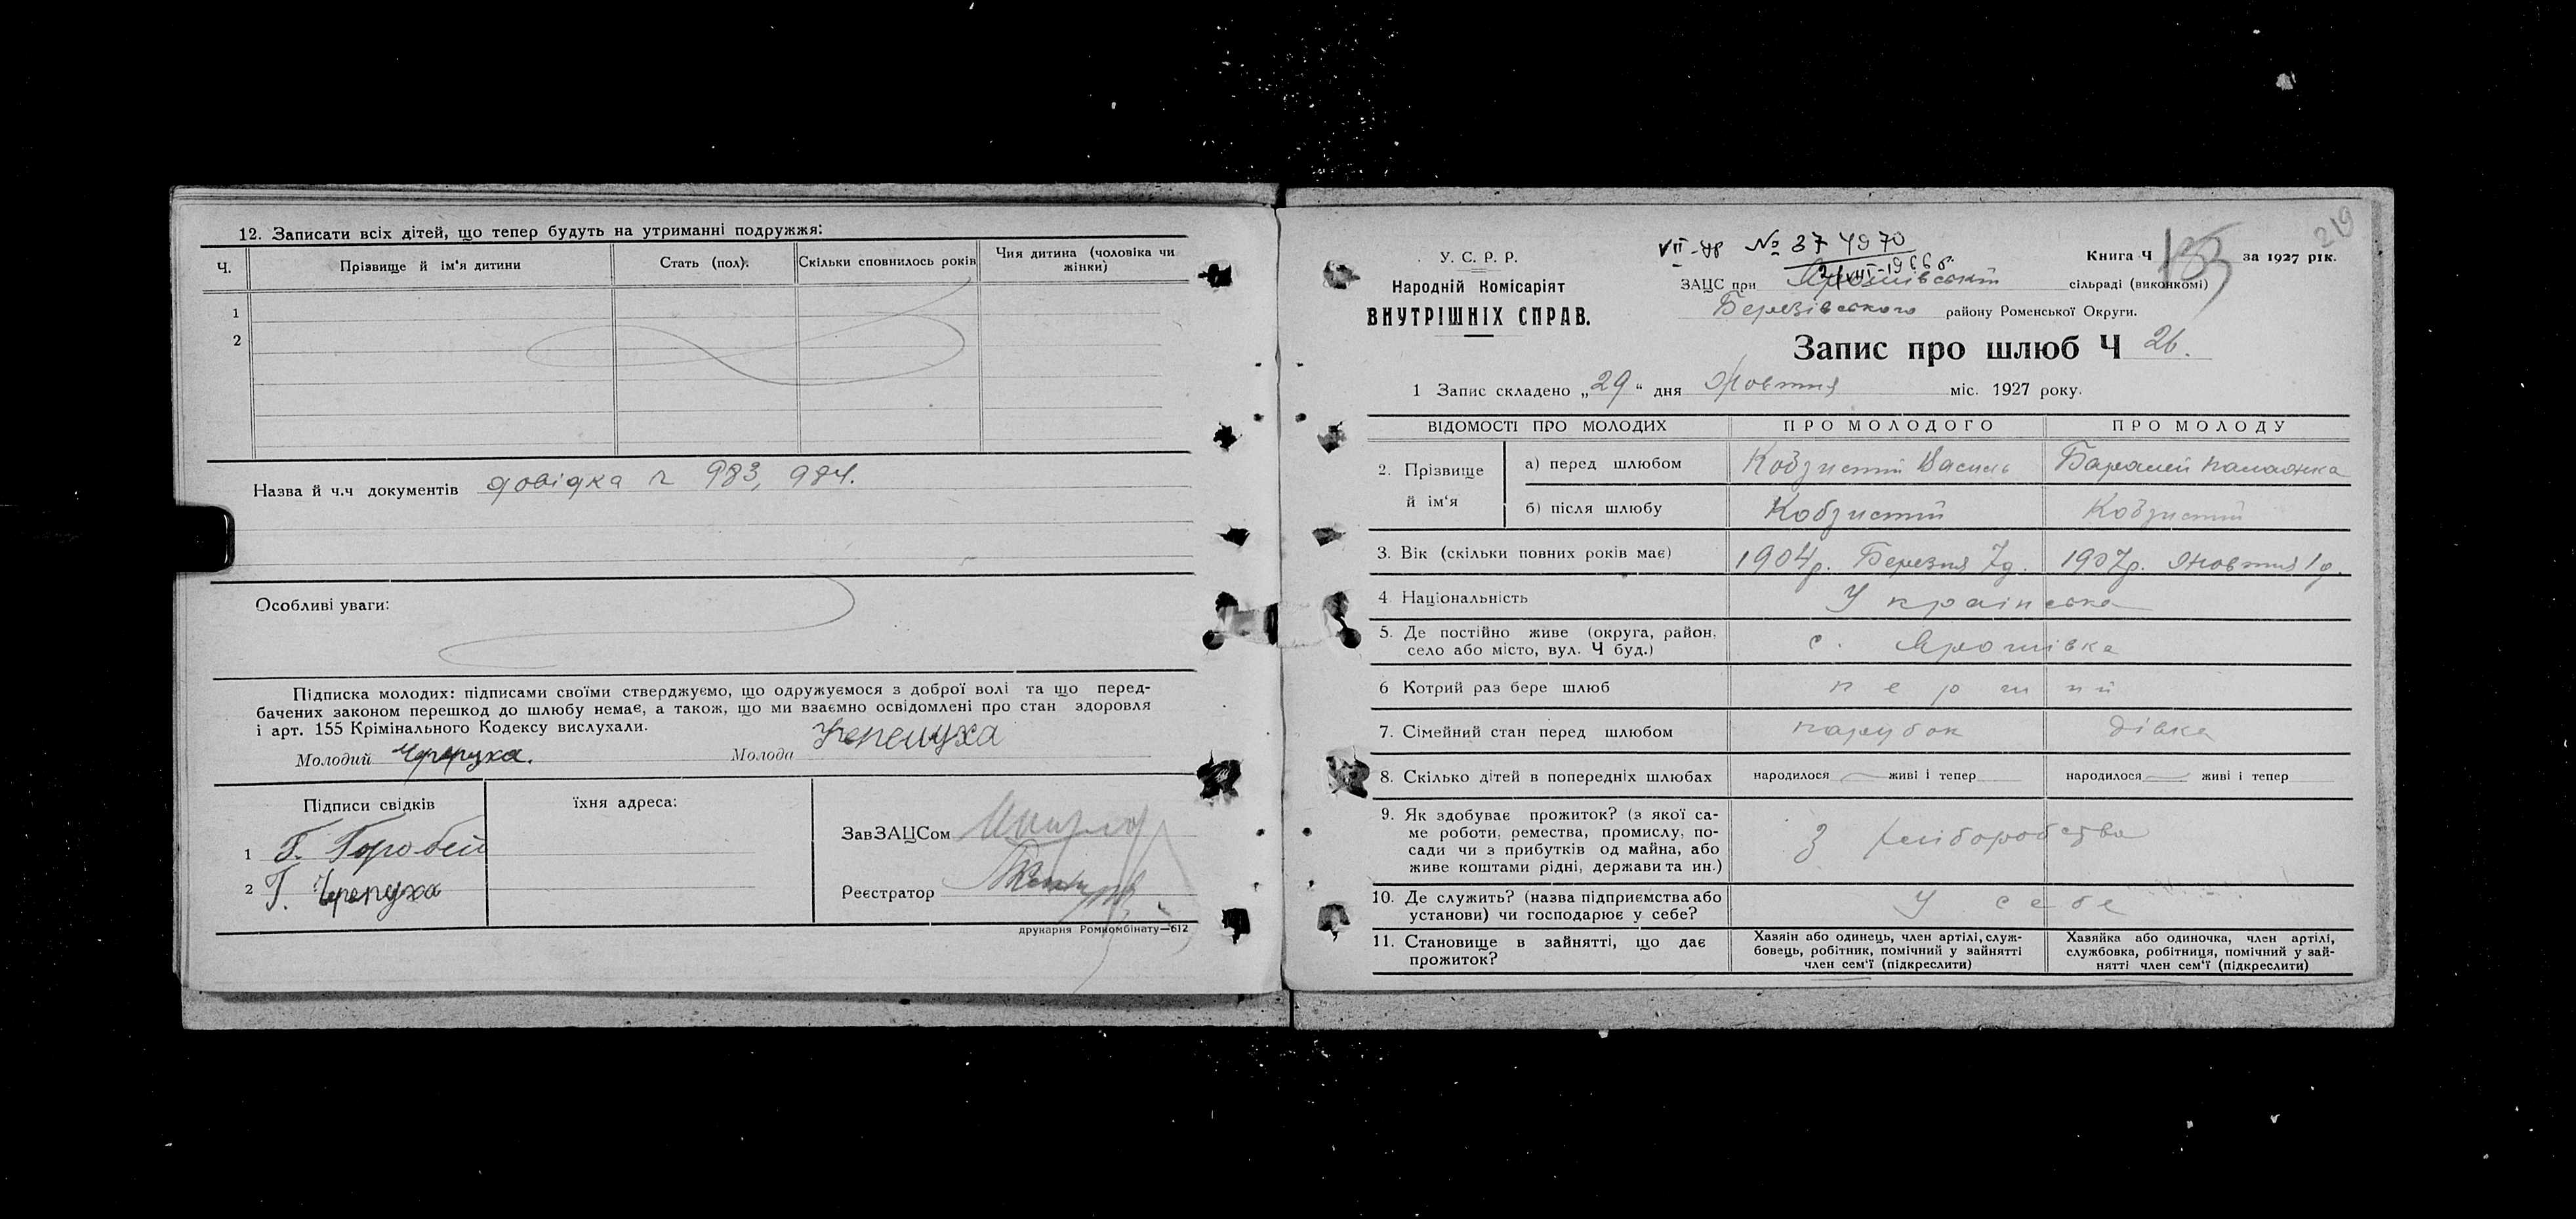 12. Записати всіх дітей, що тепер будуть на утриманні подружжя:
Ч. Прізвище й ім'я дитини Стать (пол). Скільки сповнилось років Чия дитина (чоловіка чи жінки)
1
2
Назва й ч.ч документів довідка ч 983, 984.
Особливі уваги:
Підписка молодих: підписами своїми стверджуємо, що одружуємося з доброї волі та що перед-
бачених законом перешкод до шлюбу немає, а також, що ми взаємно освідомлені про стан здоровля
і арт. 155 Крімінального Кодексу вислухали.
Молодий Черепуха. Молода Черепуха
Підписи свідків їхня адреса:
ЗавЗАЦСом
1 Г. Горобей
2 Г. Черепуха
Реєстратор
друкарня Ромкомбінату—612
219
VII-ЯР № 37 4970
У. С. Р. Р.
Книга Ч 183 за 1927 рік.
Народній Комісаріят
ВНУТРІШНІХ СПРАВ.
ЗАЦС при сільраді (виконкомі)
Березівського району Роменської Округи.
Запис про шлюб Ч 26.
1 Запис складено „29" дня Жовтня міс. 1927 року.
ВІДОМОСТІ ПРО МОЛОДИХ ПРО МОЛОДОГО ПРО МОЛОДУ
2. Прізвище й ім'я а) перед шлюбом Кобзистий Василь Баралей Палажка
б) після шлюбу Кобзистий Кобзистий
3. Вік (скільки повних років має) 1904р. Березня 7д. 1907р. Жовтня 1д.
4 Національність Українська
5. Де постійно живе (округа, район,
село або місто, вул. Ч буд.) с. Ярошівка
6 Котрий раз бере шлюб перший
7. Сімейний стан перед шлюбом парубок дівка
8. Скілько дітей в попередніх шлюбах народилося живі і тепер народилося живі і тепер
9. Як здобуває прожиток? (з якої са-
ме роботи, ремества, промислу, по-
сади чи з прибутків од майна, або
живе коштами рідні, держави та ин.) З хліборобства
10. Де служить? (назва підприємства або
установи) чи господарює у себе? У себе
11. Становище в зайнятті, що дає
прожиток?
Хазяїн або одинець, член артілі, служ-
бовець, робітник, помічний у зайнятті
член сем'ї (підкреслити)
Хазяйка або одиночка, член артілі,
службовка, робітниця, помічний у зай-
нятті член сем'ї (підкреслити)